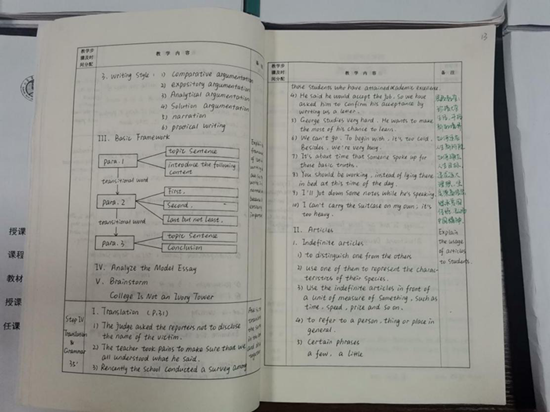 教学步
骤及时
间分配
教学内容
备注
3. Writing Style: 1) Comparative argumentation
2) expository argumentation
3) Analytical argumentation
4) Solution argumentation
5) narration
6) practical writing
III. Basic Framework
para. 1
topic Sentence
introduce the following
content
transitional word
para. 2
First,
Second,
Last but not least,
transitional word
para. 3
topic Sentence
Conclusion
IV. Analyze the Model Essay
V. Brainstorm
College Is Not an Ivory Tower
Step IV
Translation
&
Grammar
I. Translation
1) The Judge asked the reporters not to disclose
the name of the victim.
2) The teacher took pains to make sure that we
all understood what he said.
3) Recently the school conducted a survey among
13
教学步
骤及时
间分配
教学内容
备注
those students who have
4) He said he would accept the job, so we have
asked him to confirm his acceptance by
writing us a letter.
5) George studies very hard. He wants to make
the most of his chance to learn.
6) We can't go. To begin with, it's too cold.
Besides, we're very busy.
7) It's about time that someone spoke up for
these basic truths.
8) You should be working, instead of lying there
in bed at this time of the day.
9) I'll jot down some notes while he's speaking.
10) I can't carry the suitcase on my own; it's
too heavy.
II. Articles
1. Indefinite articles
1) to distinguish one from the others
2) use one of them to represent the charac-
teristics of their species.
3) Use the indefinite articles in front of
a unit of measure of something, such as
time, speed, prize and so on.
4) to refer to a person, thing or place in
general.
5) Certain phrases
a few, a little
Explain
the usage
of articles
to students.
授课
课程
教材
授课
任课